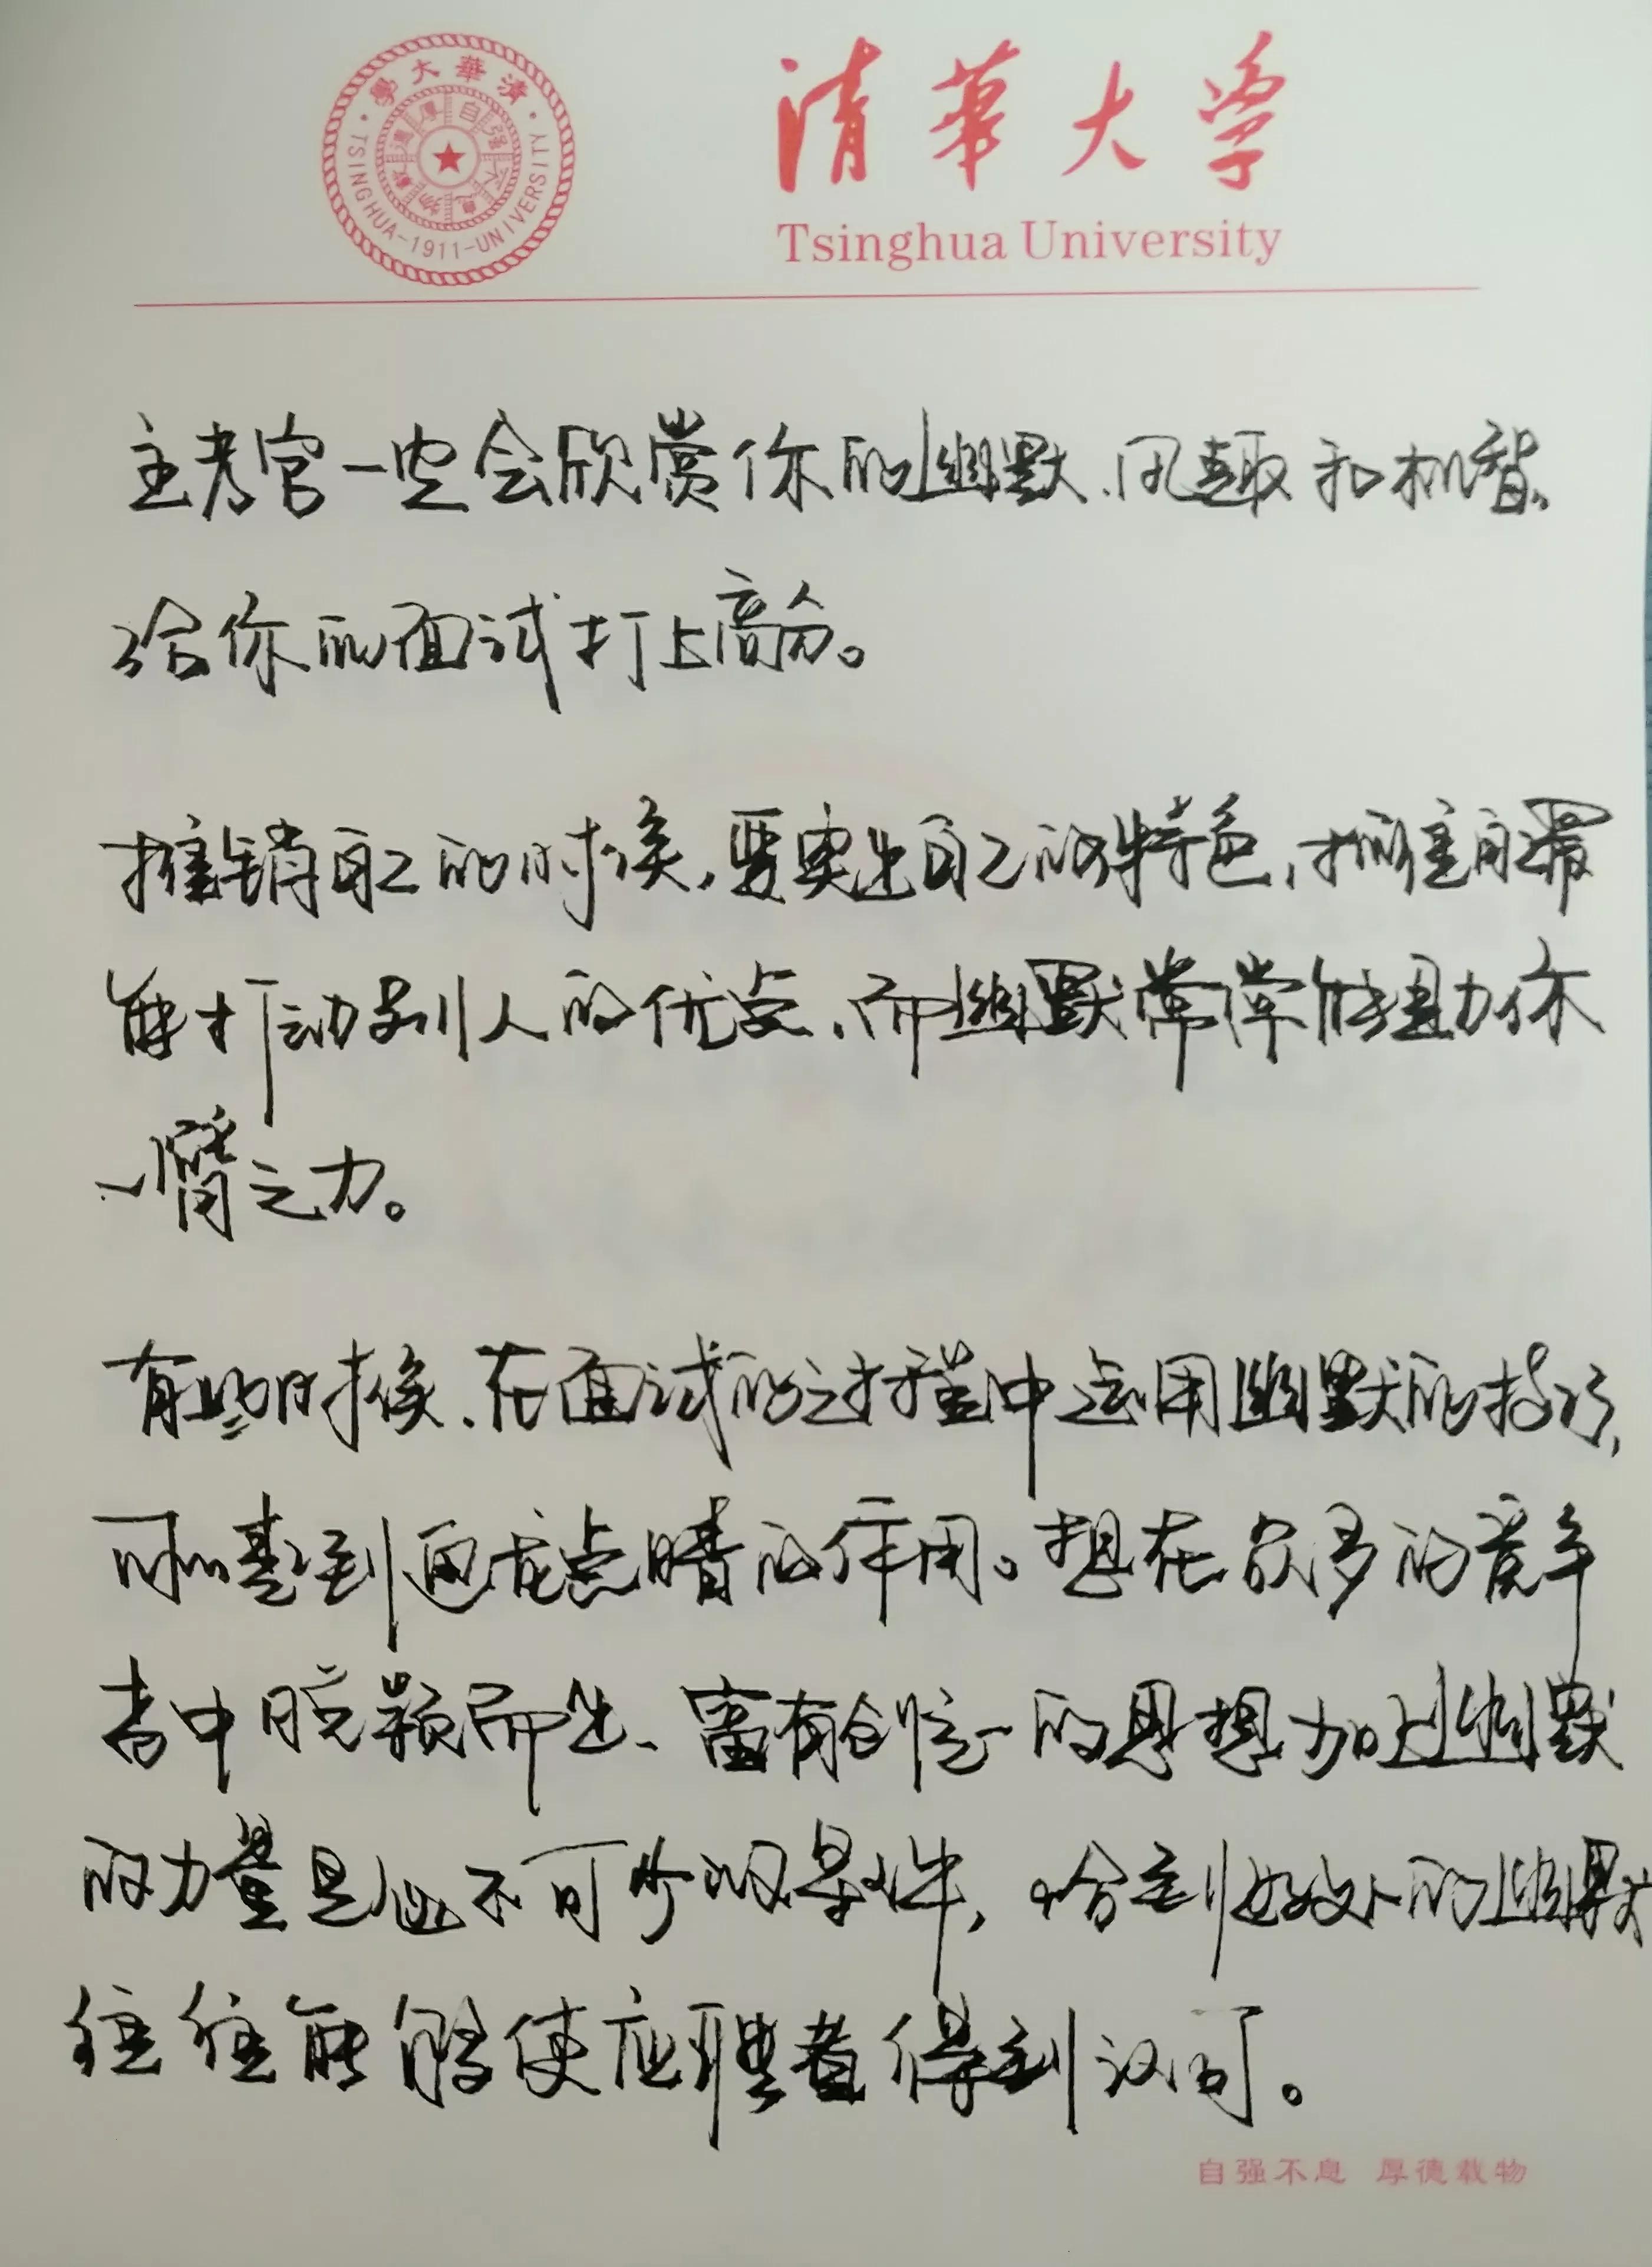 清華大學
自强不息
厚德載物
TSINGHUA-1911-UNIVERSITY
清华大学
Tsinghua University
主考官一定会欣赏你的幽默、风趣和机智。
给你的面试打上高分。
推销自己的时候,要突出自己的特色,抓住自己最
能打动别人的优点,而幽默常常能助你
一臂之力。
有些时候,在面试的过程中运用幽默的技巧,
可以起到画龙点睛的作用。想在众多的竞争
者中脱颖而出、富有创意的思想加上幽默
的力量是必不可少的条件,恰到好处的幽默
往往能够使应聘者得到认可。
自强不息 厚德载物